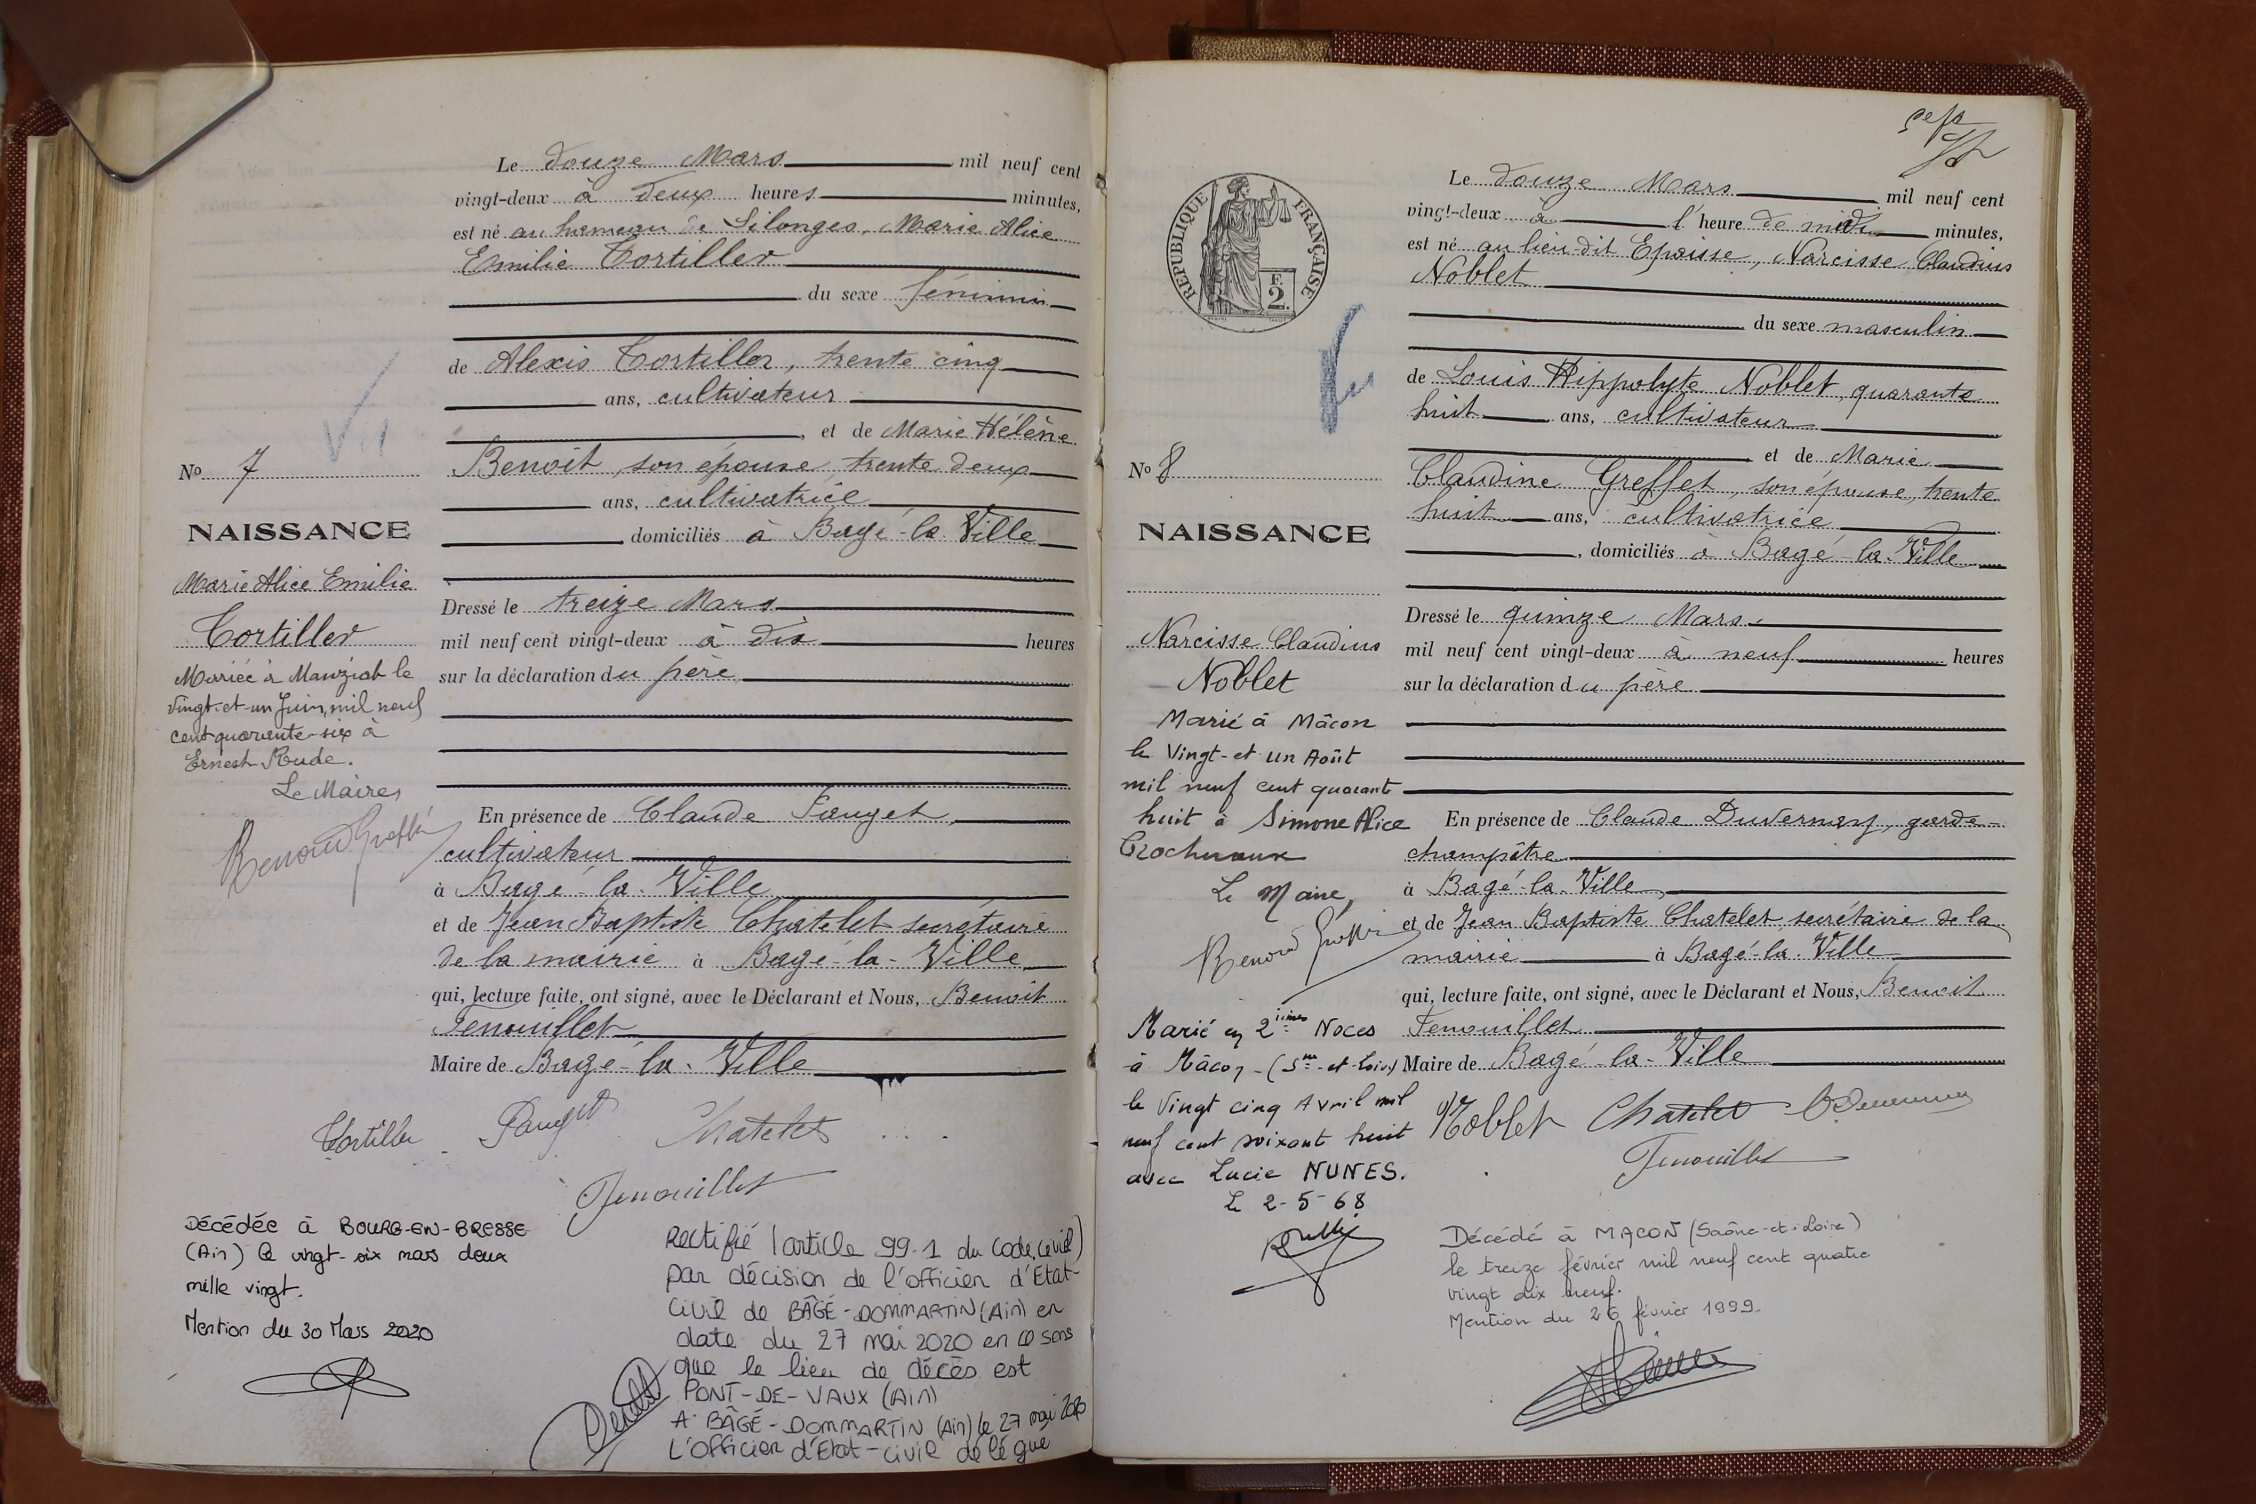 Le douze Mars mil neuf cent
vingt-deux à deux heures minutes,
est né au hameau de Silonges, Marie Alice
Emilie Tortiller
du sexe féminin
de Alexis Tortiller, trente cinq
ans, cultivateur
, et de Marie Hélène
Benoît, son épouse, trente deux
ans, cultivatrice
domiciliés à Bagé-la-Ville
Dressé le treize Mars
mil neuf cent vingt-deux à dix heures
sur la déclaration du père
En présence de Claude Pauget,
cultivateur
à Bagé-la-Ville
et de Jean Baptiste Chatelet secrétaire
de la mairie à Bagé-la-Ville
qui, lecture faite, ont signé, avec le Déclarant et Nous, Benoit
Fenouillet
Maire de Bagé-la-Ville
Tortiller Pauget Chatelet
Fenouillet
No 7
NAISSANCE
Marie Alice Emilie
Tortiller
Mariée à Manziat le
vingt-et-un Juin, mil neuf
cent quarante-six à
Ernest Rude.
Le Maire,
Décédée à BOURG-EN-BRESSE
(Ain) le vingt-six mars deux
mille vingt.
Mention du 30 Mars 2020
Rectifié (article 99-1 du code civil)
par décision de l'officier d'Etat-
civil de BÂGÉ-DOMMARTIN (Ain) en
date du 27 mai 2020 en ce sens
que le lieu de décès est
PONT-DE-VAUX (Ain)
A BÂGÉ-DOMMARTIN (Ain) le 27 mai 2020
L'officier d'Etat-civil délégué
RÉPUBLIQUE FRANÇAISE
F.
2
Le douze Mars mil neuf cent
vingt-deux à l'heure de midi minutes,
est né au lieu-dit Epaisse, Narcisse Claudius
Noblet
du sexe masculin
de Louis Hippolyte Noblet, quarante
huit ans, cultivateur
et de Marie
Claudine Greffet, son épouse, trente
huit ans, cultivatrice
, domiciliés à Bagé-la-Ville
Dressé le quinze Mars
mil neuf cent vingt-deux à neuf heures
sur la déclaration du père
En présence de Claude Duvernay, garde-
champêtre
à Bagé-la-Ville,
et de Jean Baptiste Chatelet, secrétaire de la
mairie à Bagé-la-Ville
qui, lecture faite, ont signé, avec le Déclarant et Nous, Benoit
Fenouillet
Maire de Bagé-la-Ville
Noblet Chatelet
Fenouillet
No 8
NAISSANCE
Narcisse Claudius
Noblet
Marié à Mâcon
le Vingt-et un Août
mil neuf cent quarant
huit à Simone Alice
Le Maire,
Marié en 2ièmes Noces
à Mâcon-(Sne-et-Loire)
le Vingt cinq Avril mil
neuf cent soixant huit
avec Lucie NUNES.
Le 2-5-68
Décédé à MACON (Saône-et-Loire)
le treize février mil neuf cent quatre
vingt dix neuf.
Mention du 26 février 1999.